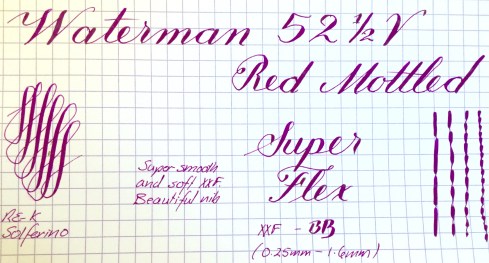 Waterman 52 ½ V
Red Mottled
Super
Flex
Super smooth
and soft XXF
Beautiful nib
R&K
Solferino
XXF - BB
(0.25mm - 1.6mm)